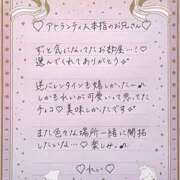 ♡アトランティス本指のお兄さん♡
ずっと気になってたお部屋…！♡
選んでくれてありがとう
逆バレンタインも嬉しかった〜♪
しかもれいが可愛いって思ってた
チョコ♡美味しかったです
また色々な場所一緒に開拓
したいな…♡楽しみ♪
♡れい♡